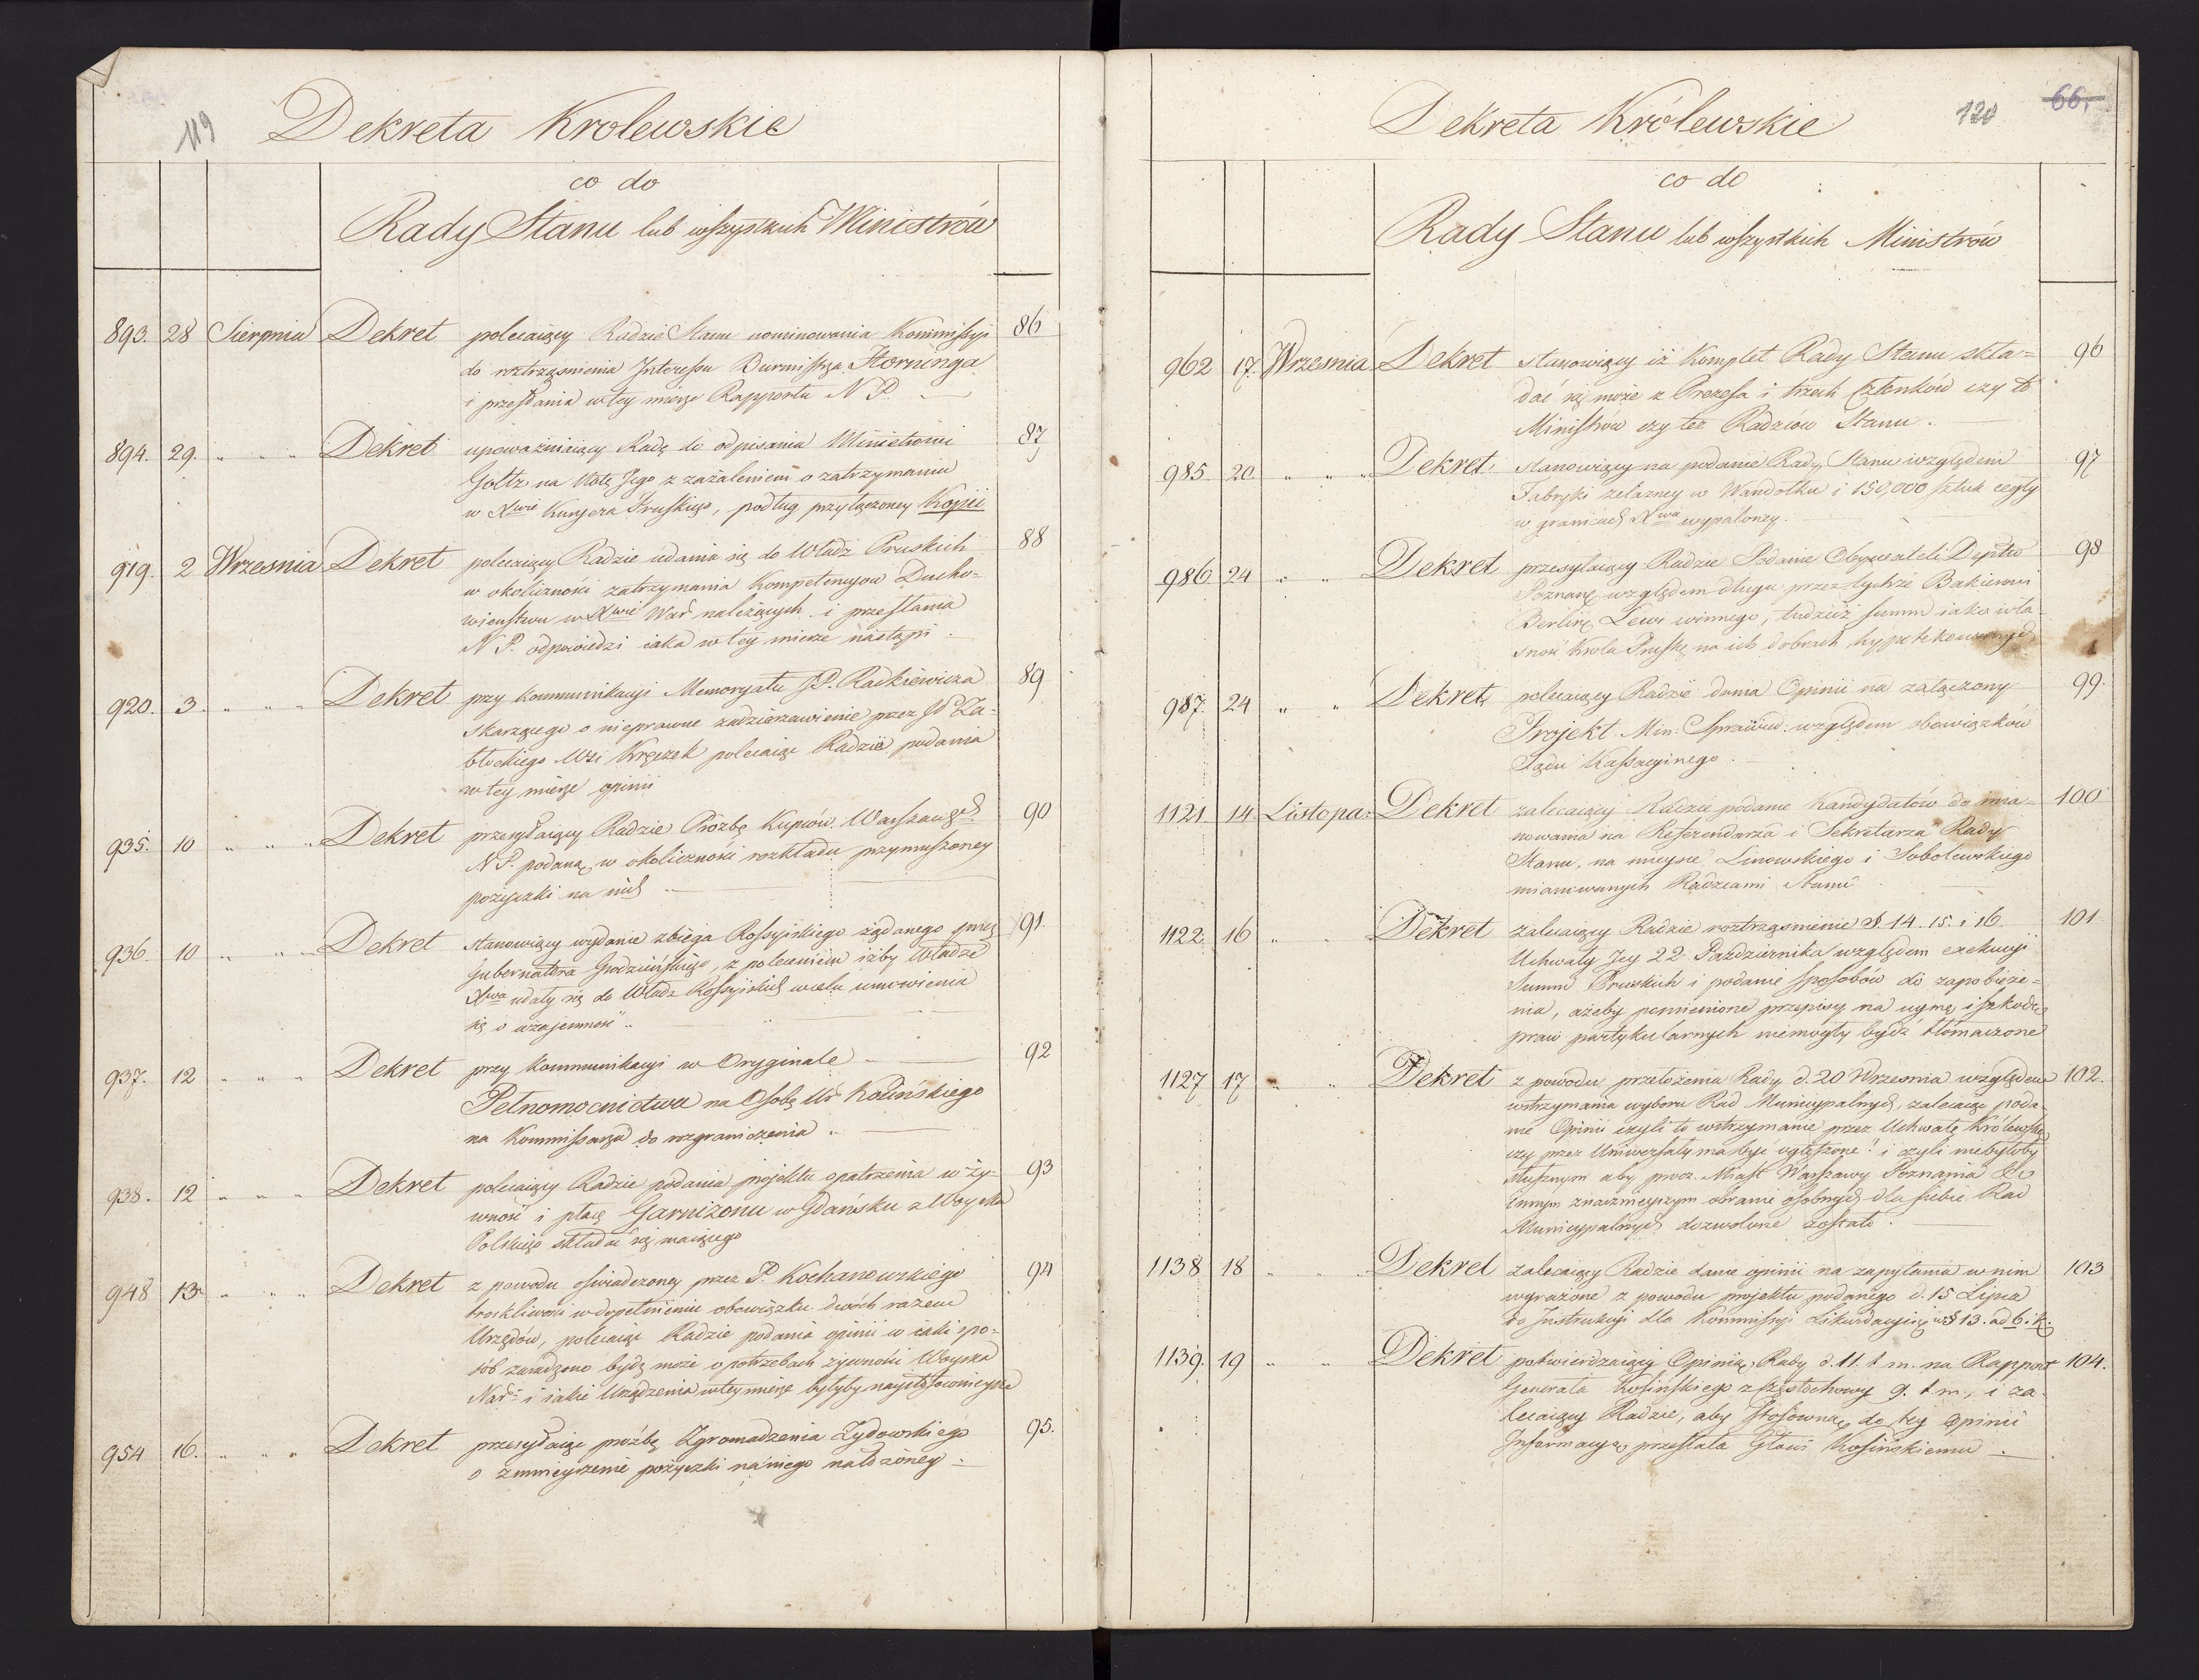 119
Dekreta Krolewskie
co do
Rady Stanu lub wszystkich Ministrów
893. 28 Sierpnia Dekret polecaiący Radzie Stanu nominowania Kommissyi 86
do roztrząsnienia Interessu Burmistrza Horninga
i przesłania w tey mierze Rapportu N P.
894. 29. " " " Dekret upoważniaiący Radę do odpisania Ministrowi 87
Goltz na Notę Jego z zażaleniem o zatrzymaniu
w Xwie Kuryera Pruskiego, podług przyłączoney Kopii
919. 2 Wrzesnia Dekret polecaiący Radzie udania się do Władz Pruskich 88
w okoliczności zatrzymania Kompetencyow Ducho=
wieństwu w Xwie War należących i przesłania
N P. odpowiedzi iaka w tey mierze nastąpi.
920. 3. " " " Dekret przy kommunikacyi Memoryału JP. Radkiewicza 89
skarzącego o nieprawne zadzierzawienie przez JP Za=
błockiego Wsi Krężek polecaiąc Radzie podania
w tey mierze opinii
935. 10 " " " Dekret przesyłaiący Radzie Prozbę Kupców Warszawsch 90
N P. podaną, w okoliczności rozkładu przymuszoney
pożyczki na nich
936. 10 " " " Dekret stanowiący wydanie zbiega Rossyiskiego żądanego przez 91
Gubernatora Grodzieńskiego, z poleceniem iżby Władze
Xwa udały się do Władz Rossyiskich wcelu umowienia
się o wzajemność
937. 12 " " " Dekret przy kommunikacyi w Oryginale 92
Pełnomocnictwa na Osobę Ur Kozińskiego
na Kommissarza do rozgraniczenia
938. 12 " " " Dekret polecaiący Radzie podania projektu opatrzenia w ży= 93
wność i płacę Garnizonu w Gdańsku z Woyska
Polskiego składać się maiącego
948 13 " " " Dekret z powodu oświadczoney przez P. Kochanowskiego 94
troskliwości w dopełnieniu obowiązku dwóch razem
Urzędów, polecaiąc Radzie podania opinii w iaki spo=
sób zaradzono bydź może o potrzebach żywności Woyska
Nadto i iakie Urządzenia w tey mierze byłyby naystosownieysze
954 16. " " " Dekret przesyłaiąc prożbę Zgromadzenia Zydowskiego 95.
o zmnieyszenie pożyczki na niego nałożoney.
120 66.
Dekreta Królewskie
co do
Rady Stanu lub wszystkich Ministrów
962 17. Wrzesnia Dekret stanowiący iż Komplet Rady Stanu skła= 96
dać się może z Prezesa i trzech Członków czy to
Ministrów czy też Radzców Stanu.
985. 20. " " " Dekret stanowiący na podanie Rady Stanu względem 97
Fabryki żelazney w Wandołku i 150,000 sztuk cegły
w granicach Xwa wypaloney.
986 24 " " Dekret przesyłaiący Radzie Podanie Obywateli Deptu 98
Poznane względem długu przez tychże Bakierowi
Berline Lewi winnego, tudzież summ iako wła=
sność Krola Pruske na ich dobrach hypotekowanych
987. 24 " " Dekret polecaiący Radzie dania Opinii na załączony 99.
Projekt Min: Sprawied: względem obowiązków
Sądu Kassacyinego.
1121. 14 Listopa: Dekret zalecaiący Radzie podanie Kandydatów do mia= 100
nowania na Referendarza i Sekretarza Rady
Stanu, na mieysce Linowskiego i Sobolewskiego
mianowanych Radzcami Stanu
1122. 16 " " Dekret zalecaiący Radzie roztrząsnienie § 14. 15. i 16 101
Uchwały Jey 22 Pazdziernika względem exekucyi
Summ Pruskich i podanie sposobow do zapobieże=
nia, ażeby pomienione przepisy na uymę i szkodę
praw partykularnych niemogły bydź tłómaczone
1127 17 " " Dekret z powodu przełożenia Rady d. 20 Wrzesnia względem 102.
wstrzymania wyboru Rad Municypalnych, zalecaiąc poda=
nie Opinii czyli to wstrzymanie przez Uchwałę Królewską
czy przez Uniwersały ma być ogłoszone? i czyli niebyłoby
słusznym aby procz Miast Warszawy Poznania &c
innym znacznieyszym obranie osobnych dla siebie Rad
Municypalnych dozwolone zostało.
1138 18 " " Dekret zalecaiący Radzie danie opinii na zapytania w nim 103
wyrażone z powodu projektu podanego d. 15 Lipca
do Instrukcyi dla Kommissyi Likwidacyiney w § 13. ad b. i k.
1139. 19 " " Dekret potwierdzaiący Opinią Rady d. 11. t. m. na Rapport 104.
Generała Kosińskiego z Częstochowy 9. t. m., i za=
lecaiący Radzie, aby stosowną do tey opinii
Informacyą przesłała Głowi Kosińskiemu